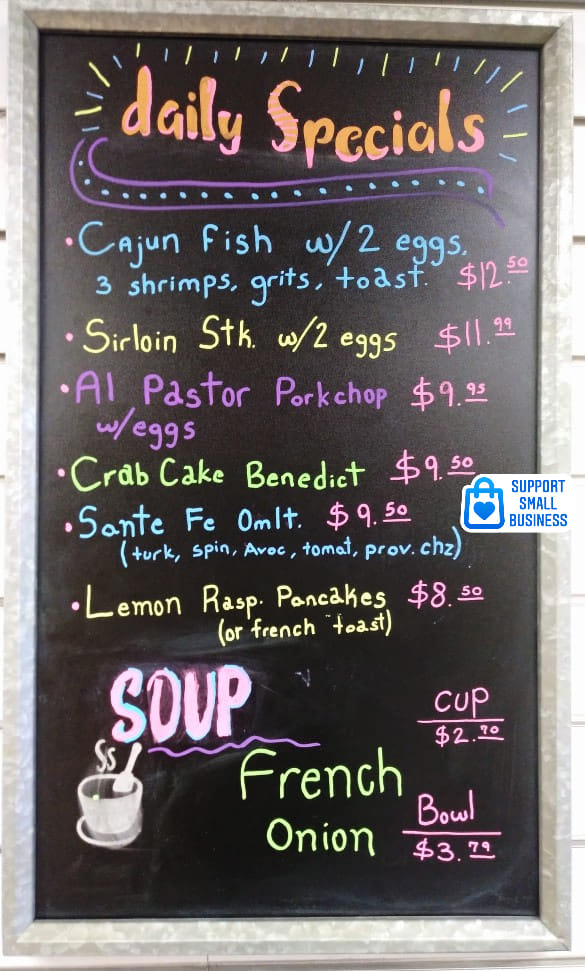 daily Specials
• Cajun Fish w/2 eggs,
3 shrimps, grits, toast. $12.50
• Sirloin Stk. w/2 eggs $11.99
• Al Pastor Porkchop $9.95
w/eggs
• Crab Cake Benedict $9.50
• Sante Fe Omlt. $9.50
(turk, spin, Avoc, tomat, prov. chz)
• Lemon Rasp. Pancakes $8.50
(or french toast)
SUPPORT
SMALL
BUSINESS
SOUP
French
Onion
CUP
$2.70
Bowl
$3.79